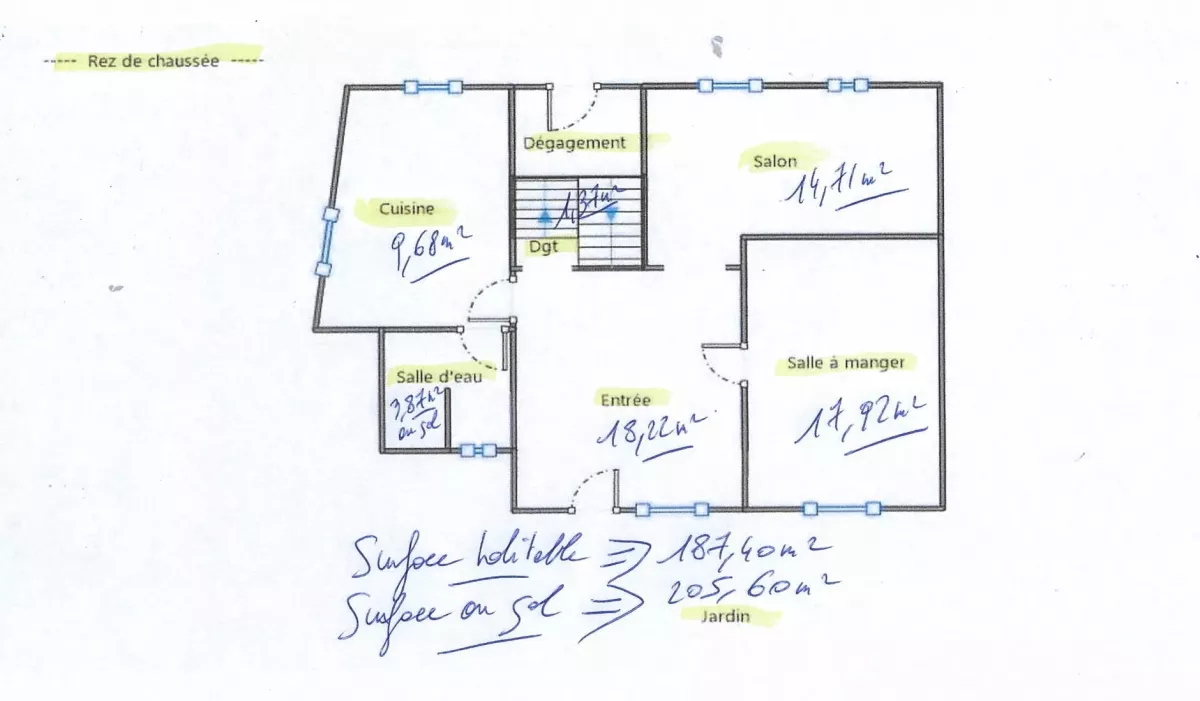 ----- Rez de chaussée -----
Dégagement
Salon
14,71 m²
1,37 m²
Cuisine
9,68 m²
Dgt
Salle d'eau
3,87 m²
au sol
Entrée
18,22 m²
Salle à manger
17,92 m²
Surface habitable => 187,40 m²
Surface au sol => 205,60 m²
Jardin